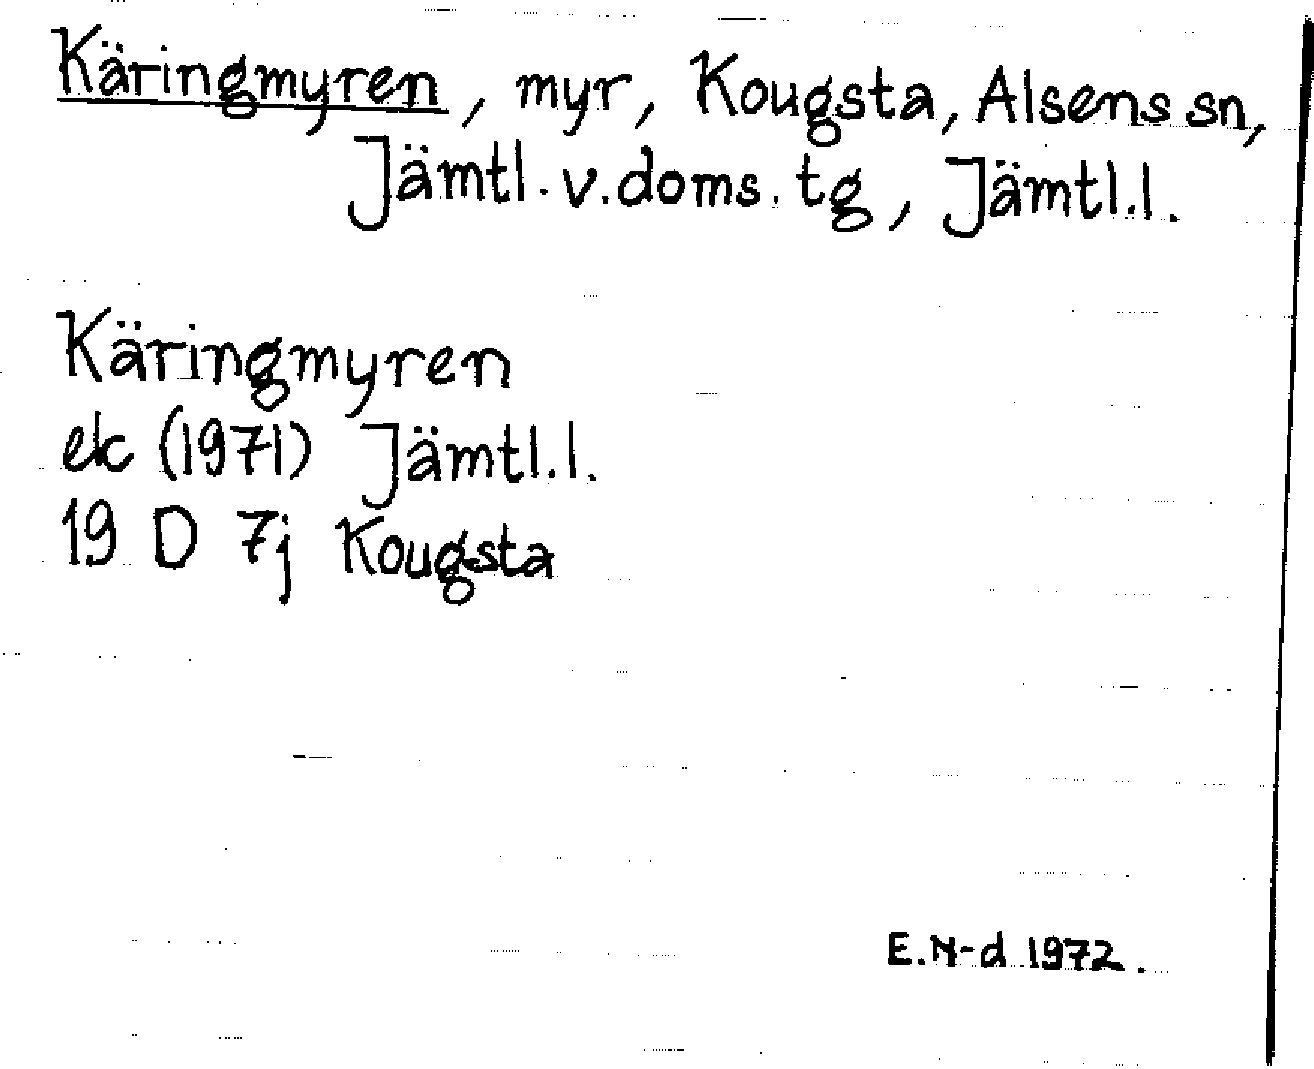 Käringmyren, myr, Kougsta, Alsens sn,
Jämtl. v. doms. tg, Jämtl.l.
Käringmyren
ek (1971) Jämtl.l.
19 D 7j Kougsta
E.N-d 1972.